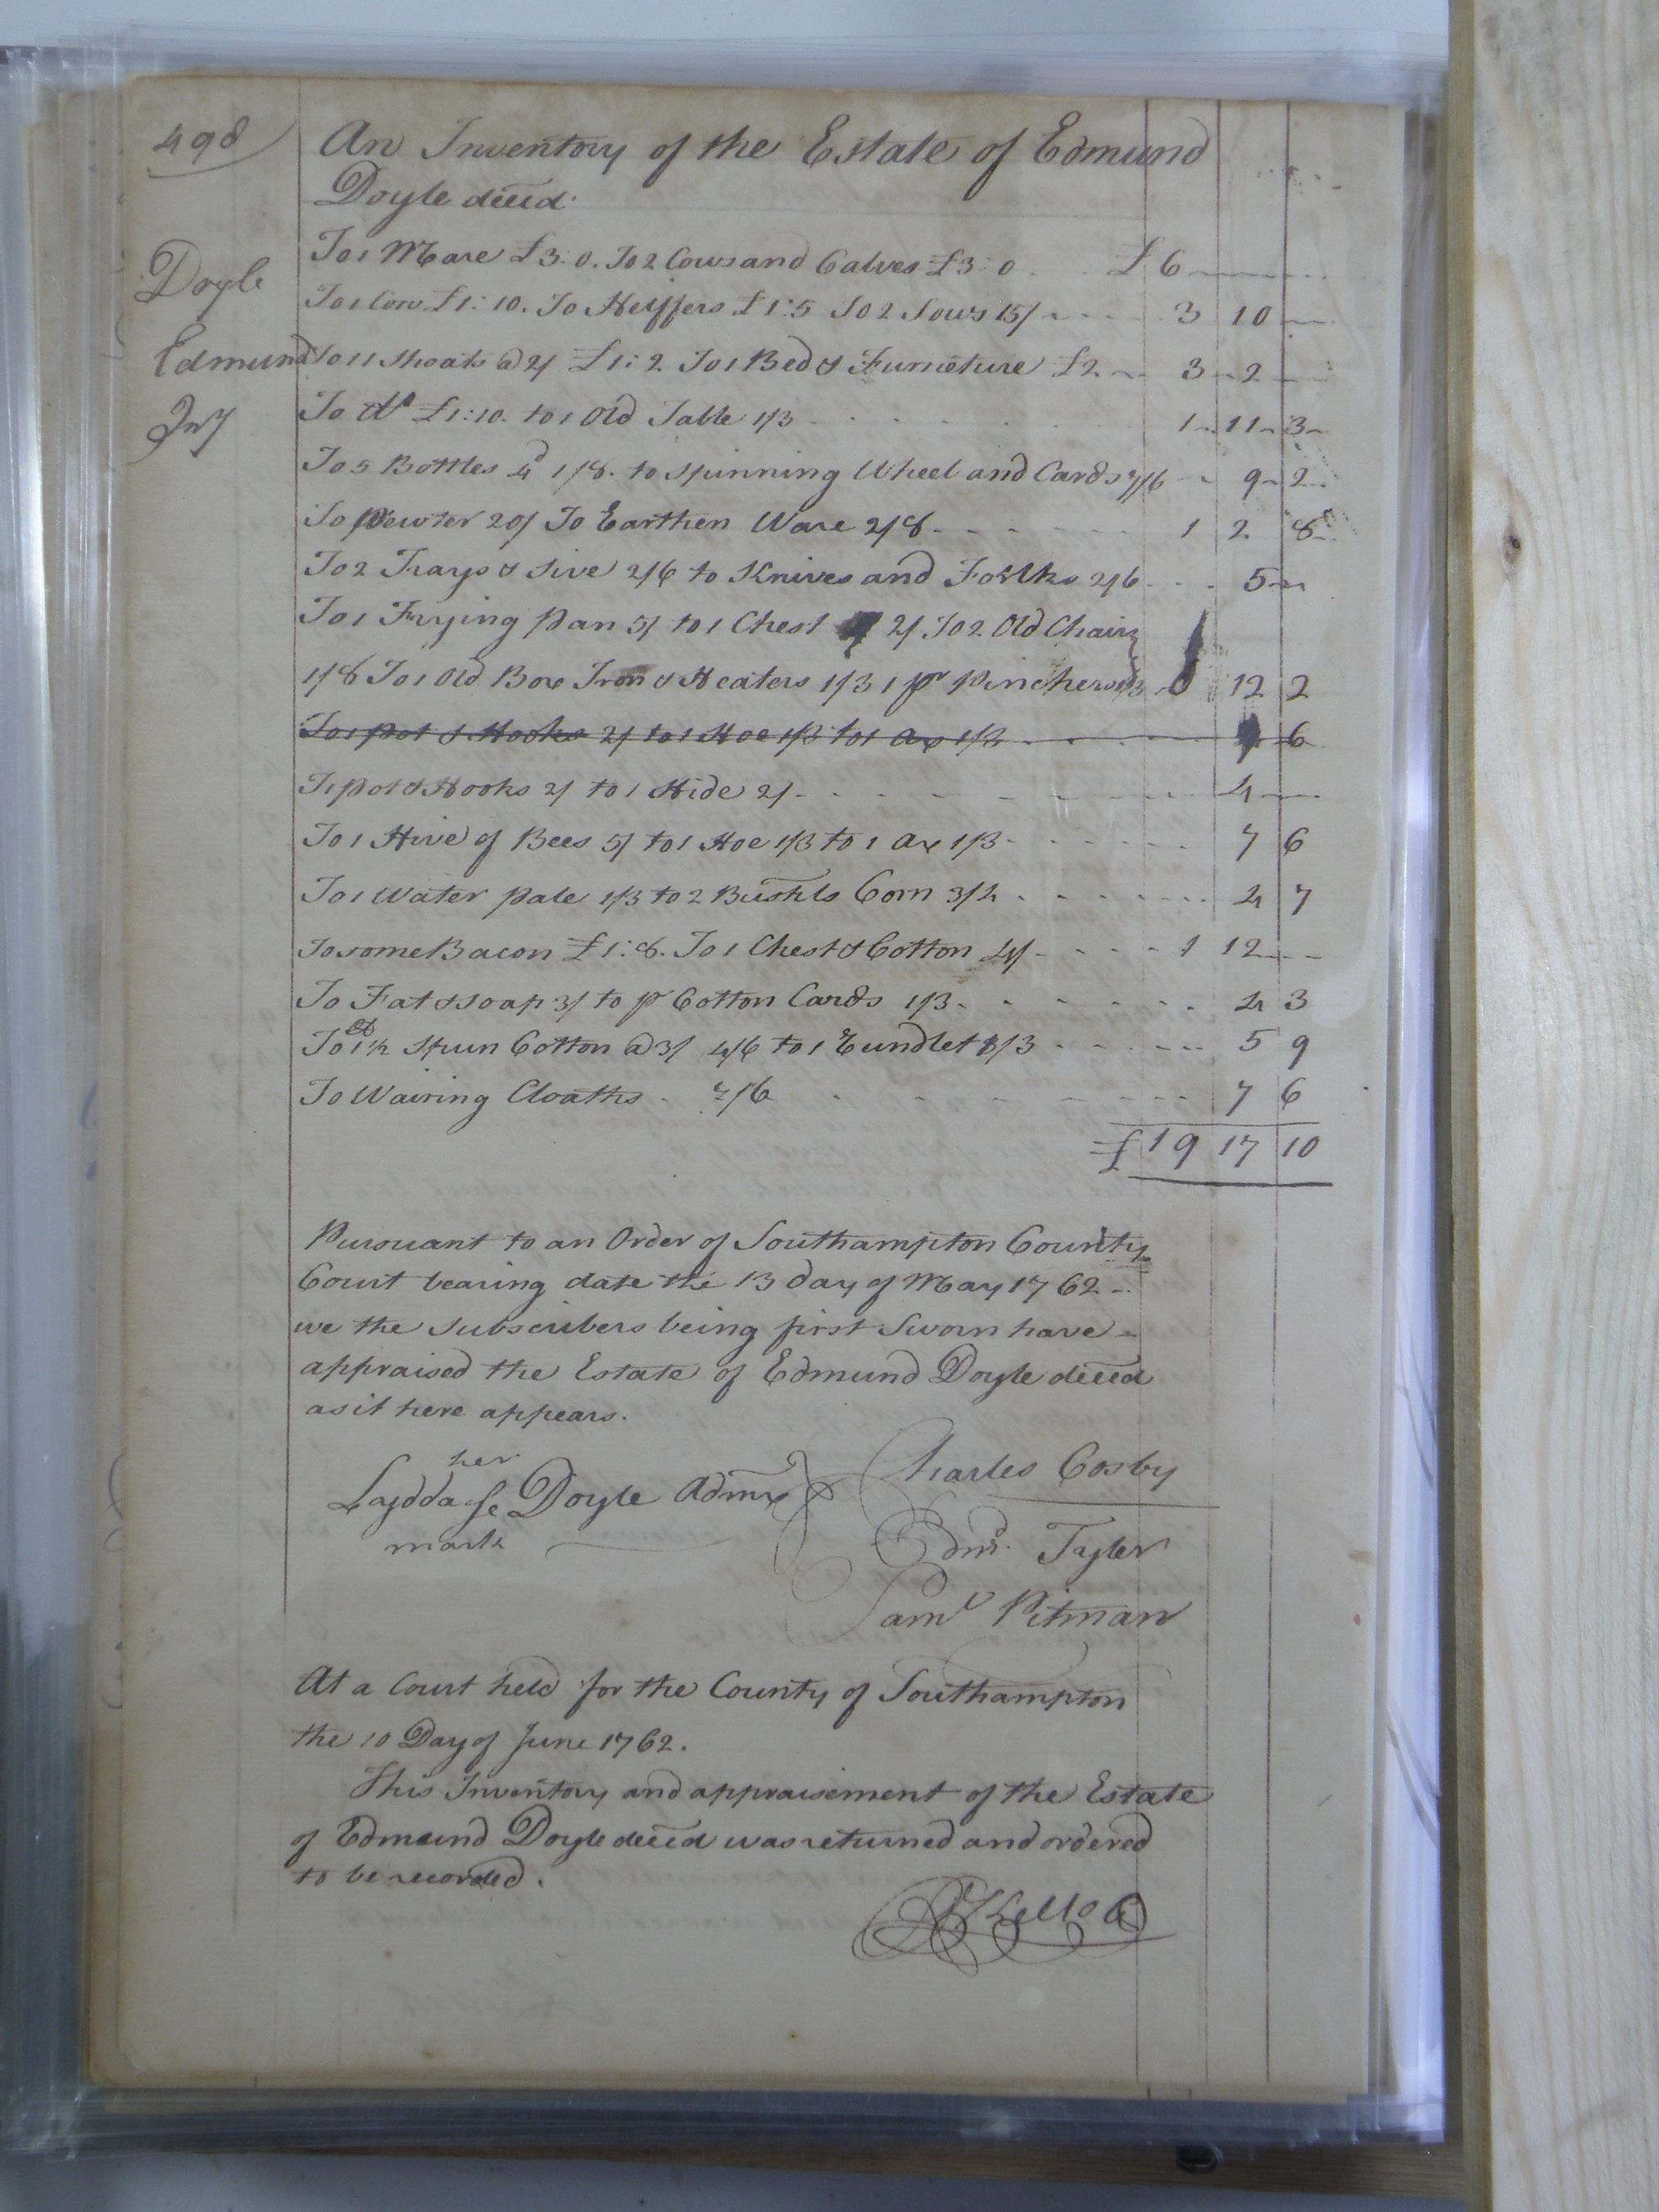 498
An Inventory of the Estate of Edmund
Doyle decd.
Doyle
Edmund
Inv
To 1 Mare £3:0. To 2 Cows and Calves £3:0 £6
To 1 Cow £1:10. To Heiffers £1:5 To 2 Sows 15/ 3 10
To 11 Shoats @ 2/ £1:2 To 1 Bed & Furneture £2 3 2
To do £1:10. to 1 Old Table 1/3 1 11 3
To 5 Bottles 4d 1/8. to Spinning Wheel and Cards 7/6 9 2
To Pewter 20/ To Earthen Ware 2/8 1 2 8
To 2 Trays & Sive 2/6 to Knives and Forks 2/6 5
To 1 Frying Pan 5/ to 1 Chest 2/ To 2 Old Chairs
1/8 To 1 Old Box Iron & Heaters 1/3 1 pr Pinchers 12 2
To 1 pot & Hooks 2/ to 1 Hoe 1/3 to 1 ax 1/3 6
To pot & Hooks 2/ to 1 Hide 2/ 4
To 1 Hive of Bees 5/ to 1 Hoe 1/3 to 1 ax 1/3 7 6
To 1 Water pale 1/3 to 2 Bushls Corn 3/4 4 7
To some Bacon £1:8. To 1 Chest & Cotton 4/ 1 12
To Fat & Soap 3/ to pr Cotton Cards 1/3 4 3
To 1½ lb Spun Cotton @ 3/ 4/6 to 1 Rundlet 1/3 5 9
To Wairing Cloaths 7/6 7 6
£19 17 10
Pursuant to an Order of Southampton County
Court bearing date the 13 day of May 1762
we the Subscribers being first Sworn have
appraised the Estate of Edmund Doyle decd
as it here appears.
her
Lydda Doyle Admx
mark
Charles Cosby
Edmd. Tayler
Saml Pitman
At a Court held for the County of Southampton
the 10 Day of June 1762.
This Inventory and appraisement of the Estate
of Edmund Doyle decd was returned and ordered
to be recorded.